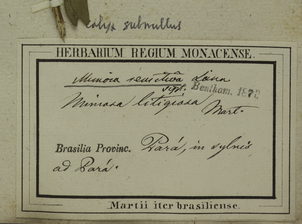 calyx subnullus
HERBARIUM REGIUM MONACENSE.
Mimosa sensitiva Linn
Sept. Bentham. 1873
Mimosa litigiosa
Mart.
Brasilia Provinc. Pará, in sylvis
ad Pará.
Martii iter brasiliense.